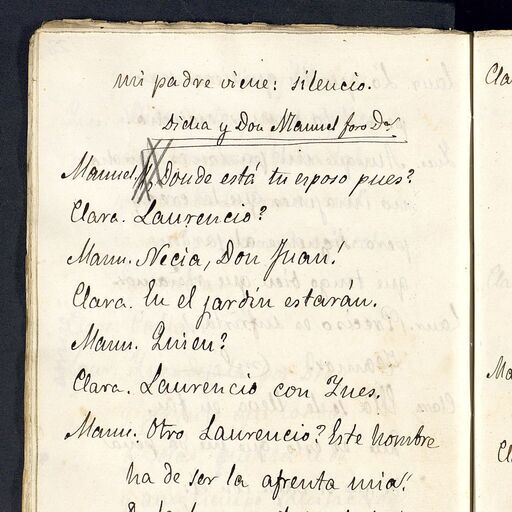 mi padre viene: silencio.
Dicha y Don Manuel foro Da.
Manuel. Donde está tu esposo pues?
Clara. Laurencio?
Manu. Necia, Don Juan!
Clara. En el jardin estarán.
Manu. Quien?
Clara. Laurencio con Ines.
Manu. Otro Laurencio? Este hombre
ha de ser la afrenta mia!
Cla
Ma
Cl